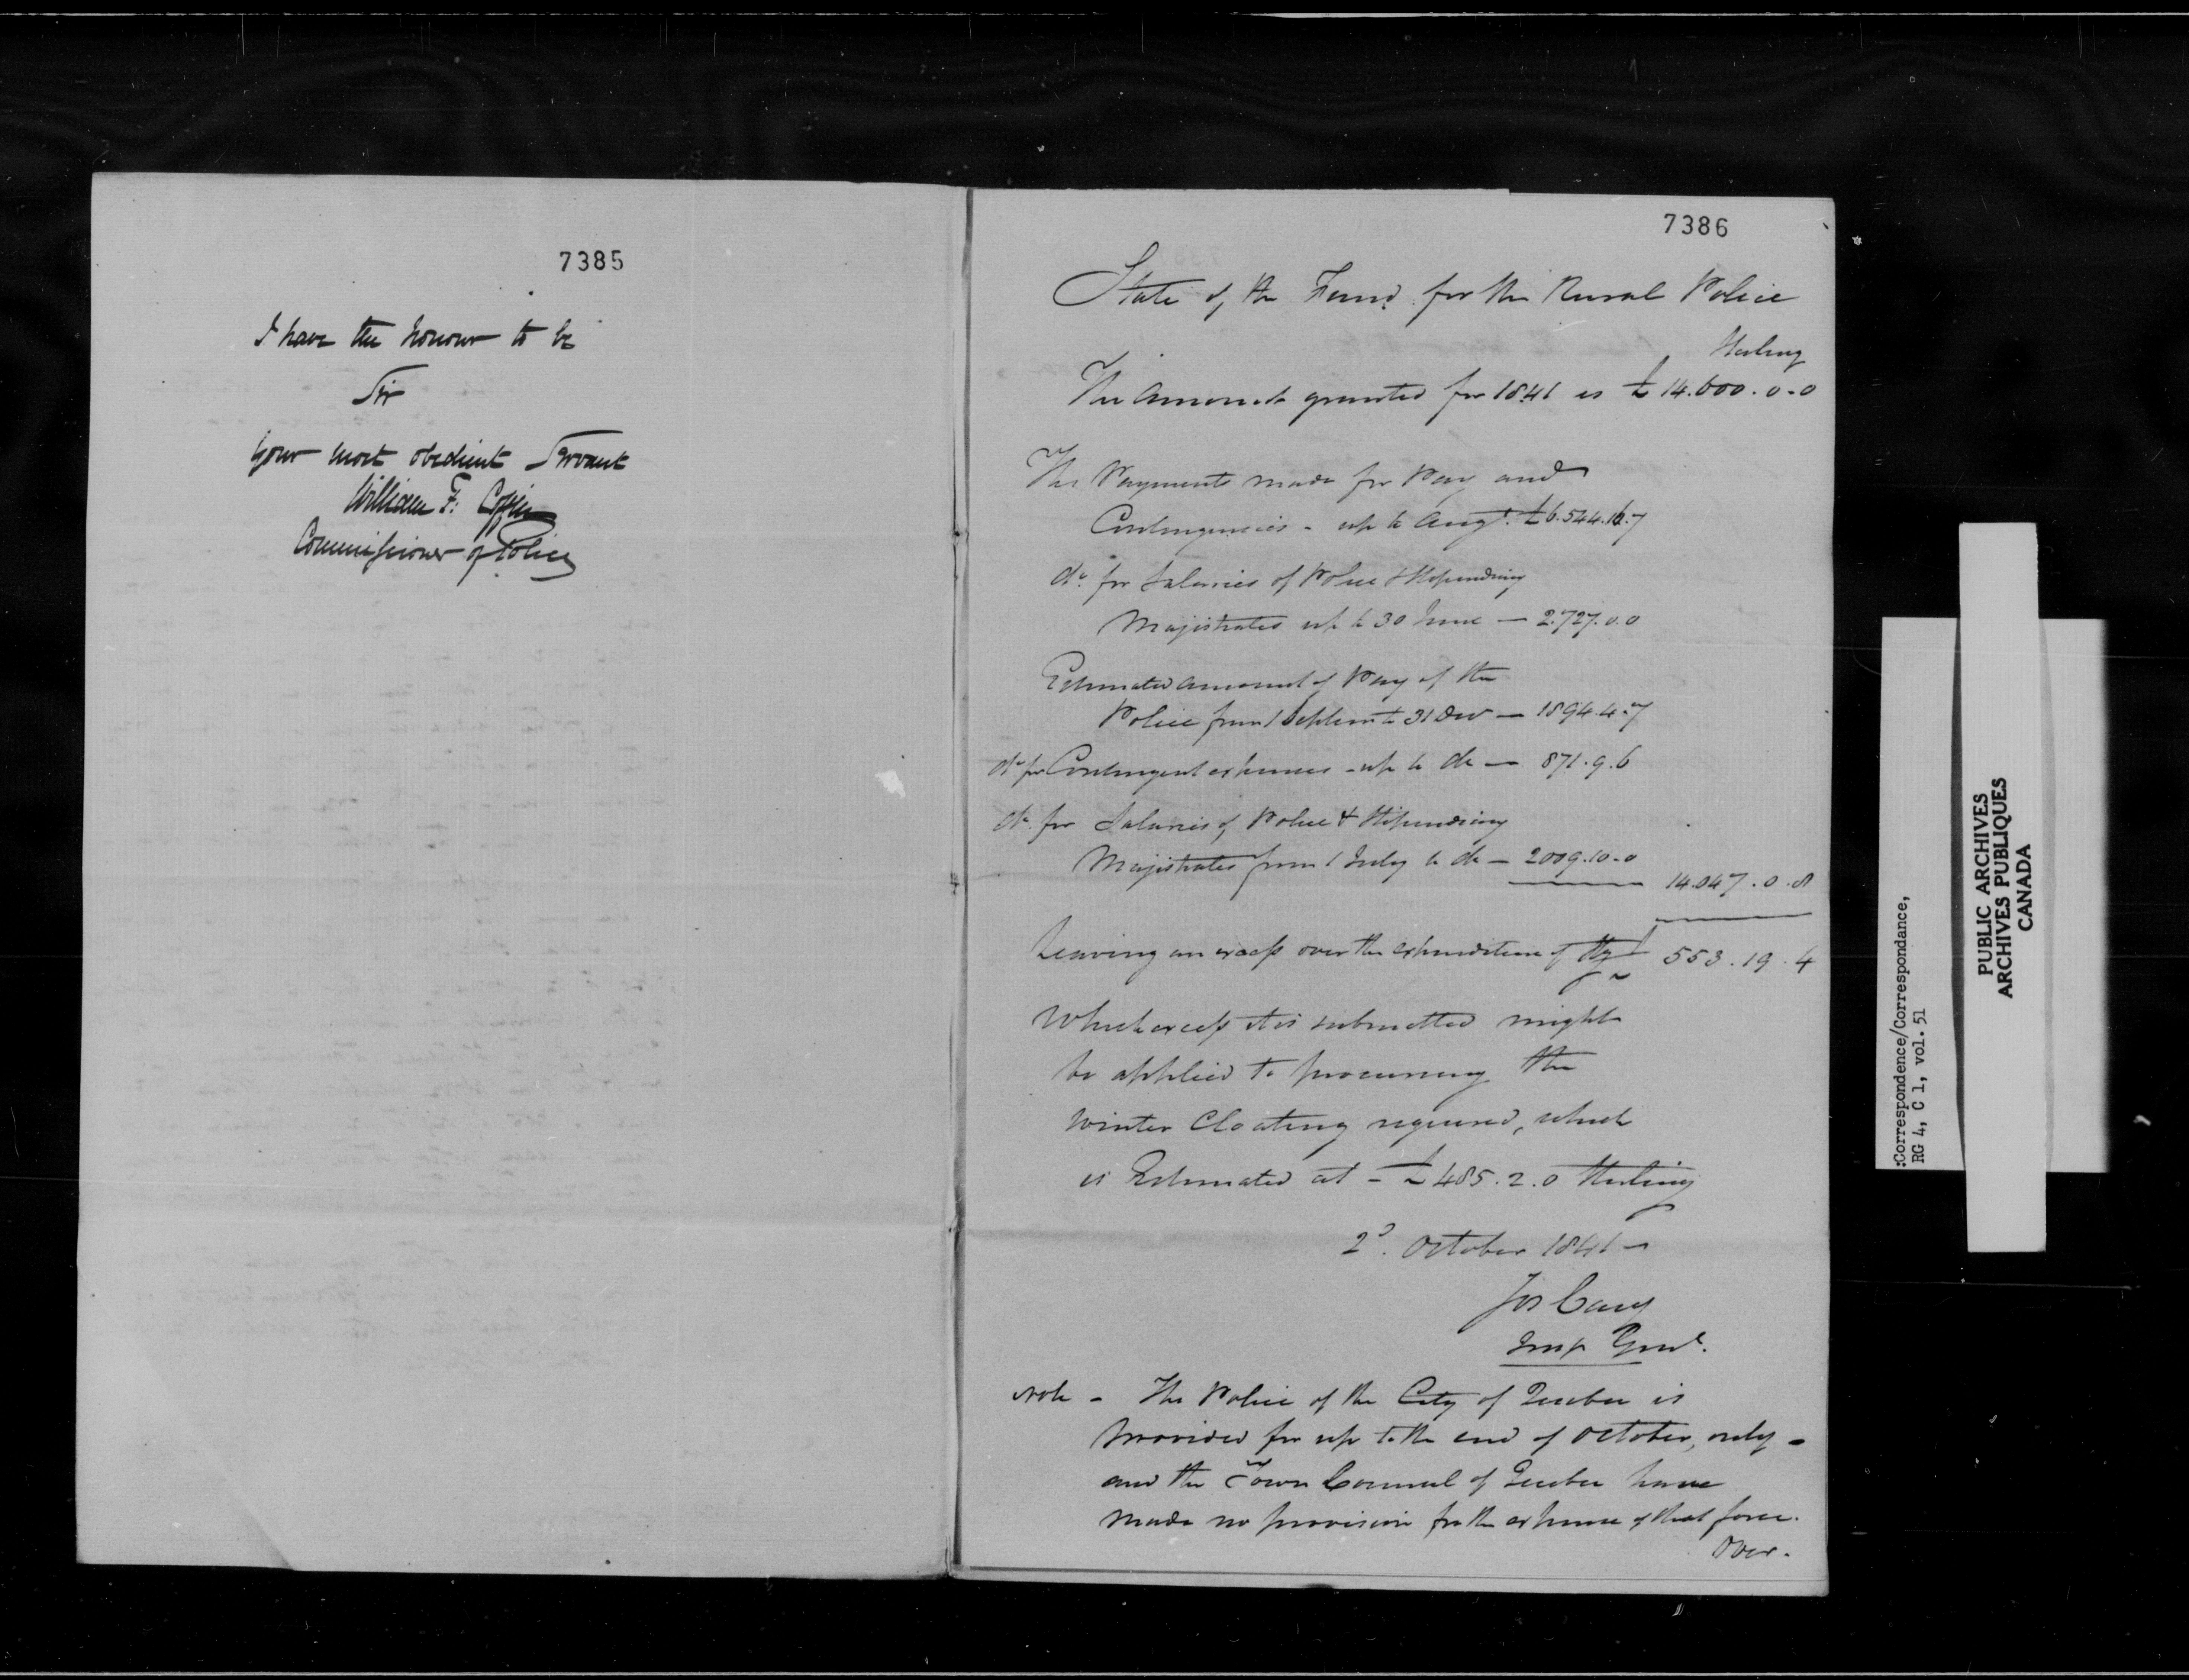 7385
I have the honour to be
Sir
Your most obedient Servant
William F: Coffin
Commissioner of Police
7386
State of the Fund for the Rural Police
Sterling
The Amount granted for 1841 is £ 14.600.0-0
The Payments made for Pay and
Contingencies - up to Augt. £6.544.16.7
do. for Salaries of Police & Stipendiary
Magistrates up to 30 June — 2.727.0.0
Estimated amount of Pay of the
Police from 1 Septem to 31 Dec — 1894.4.7
do for Contingent expenses - up to do — 871.9.6
do. for Salaries of Police & Stipendiary
Magistrates from 1 July to do — 2009.10-0
14.047.0.8
Leaving an excess over the expenditure of Stg £ 553.19.4
Which excess it is submitted might
be applied to procuring the
Winter Cloating required, which
is Estimated at - £485.2.0 Sterling
2d. October 1841 —
Jos Cary
Insp Genl.
Note - The Police of the City of Quebec is
provided for up to the end of October, only -
and the Town Council of Quebec have
made no provision for the expense of that force.
Over.
:Correspondence/Correspondance,
RG 4, C 1, vol. 51
PUBLIC ARCHIVES
ARCHIVES PUBLIQUES
CANADA